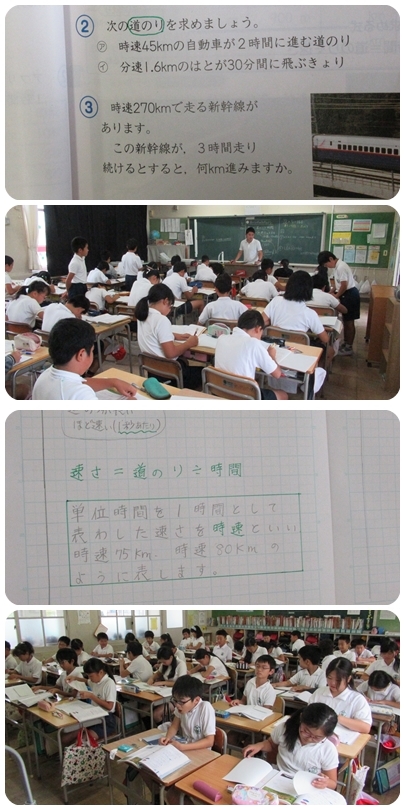 ② 次の道のりを求めましょう。
㋐ 時速45kmの自動車が2時間に進む道のり
㋑ 分速1.6kmのはとが30分間に飛ぶきょり
③ 時速270kmで走る新幹線が
あります。
この新幹線が，3時間走り
続けるとすると，何km進みますか。
ほど速い(1秒あたり)
速さ＝道のり÷時間
単位時間を1時間として
表わした速さを時速といい
時速75km、時速80kmの
ように表します。